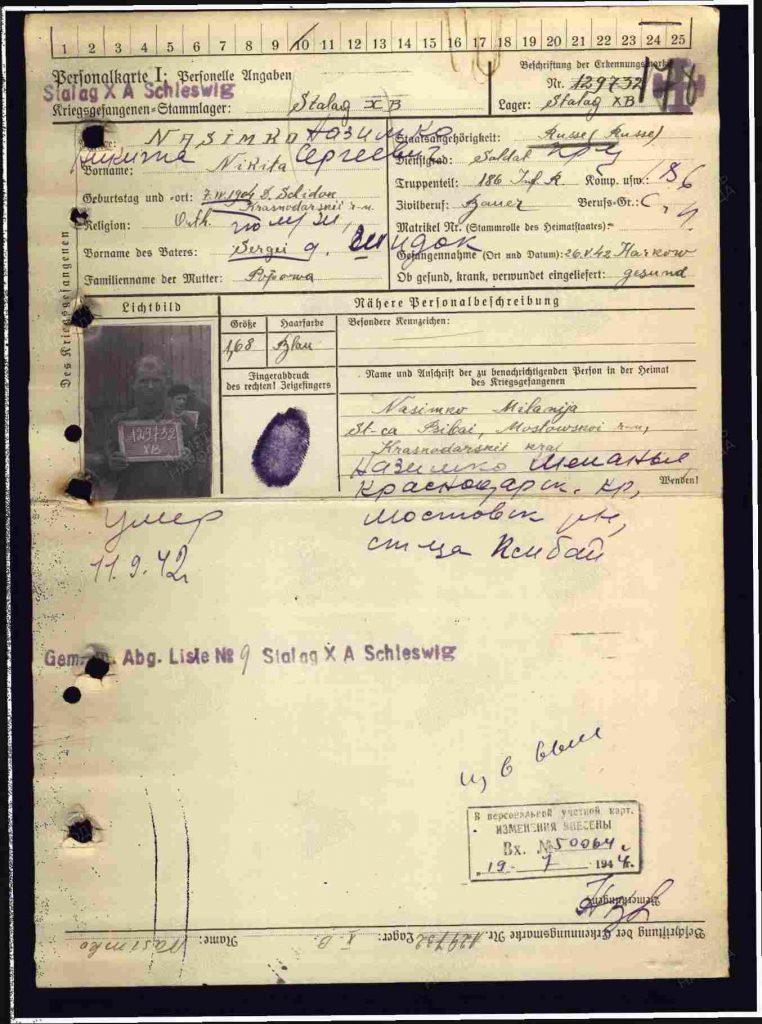 1 2 3 4 5 6 7 8 9 10 11 12 13 14 15 16 17 18 19 20 21 22 23 24 25
Personalkarte I: Personelle Angaben
Stalag X A Schleswig
Kriegsgefangenen-Stammlager: Stalag X B
Beschriftung der Erkennungsmarke
Nr. 129732
Lager: Stalag XB
Des Kriegsgefangenen
NASIMKO Назимко
Никита Сергеевич
Vorname: Nikita
Geburtstag und -ort: 7.IV.1904 D. Schidon
Krasnodarskii r-n.
Religion: Orth.
Vorname des Vaters: Sergei д. Шидок
Familienname der Mutter: Popowa
Staatsangehörigkeit: Russe (Russe)
Dienstgrad: Soldat
Truppenteil: 186 Inf. R. Komp. usw.: 86
Zivilberuf: Bauer Berufs-Gr.:
Matrikel Nr. (Stammrolle des Heimatstaates):
Gefangennahme (Ort und Datum): 26.V.42 Harkow
Ob gesund, krank, verwundet eingeliefert: gesund
Lichtbild
129732
XB
Nähere Personalbeschreibung
Größe Haarfarbe
1,68 Blau
Besondere Kennzeichen:
Fingerabdruck
des rechten! Zeigefingers
Name und Anschrift der zu benachrichtigenden Person in der Heimat
des Kriegsgefangenen
Nasimko Milanija
St-ca Psibai, Mostowskoi r-n,
Krasnodarskii krai
Назимко Меланья
Краснодарск. кр,
Wenden!
Мостовск р-н,
ст-ца Псибай
умер
11.9.42г
Gem. Abg. Liste № 9 Stalag X A Schleswig
В персональной учетной карт.
ИЗМЕНЕНИЯ ВНЕСЕНЫ
Вх. № 50064
"19" 7 194 г.
Bemerkungen:
Beschriftung der Erkennungsmarke Nr. 129732 Lager: X B. Name: Nasimko